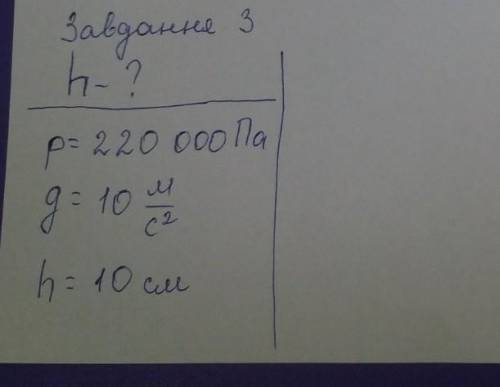 Завдання 3
h - ?
p = 220 000 Па
g = 10 м/с²
h = 10 см